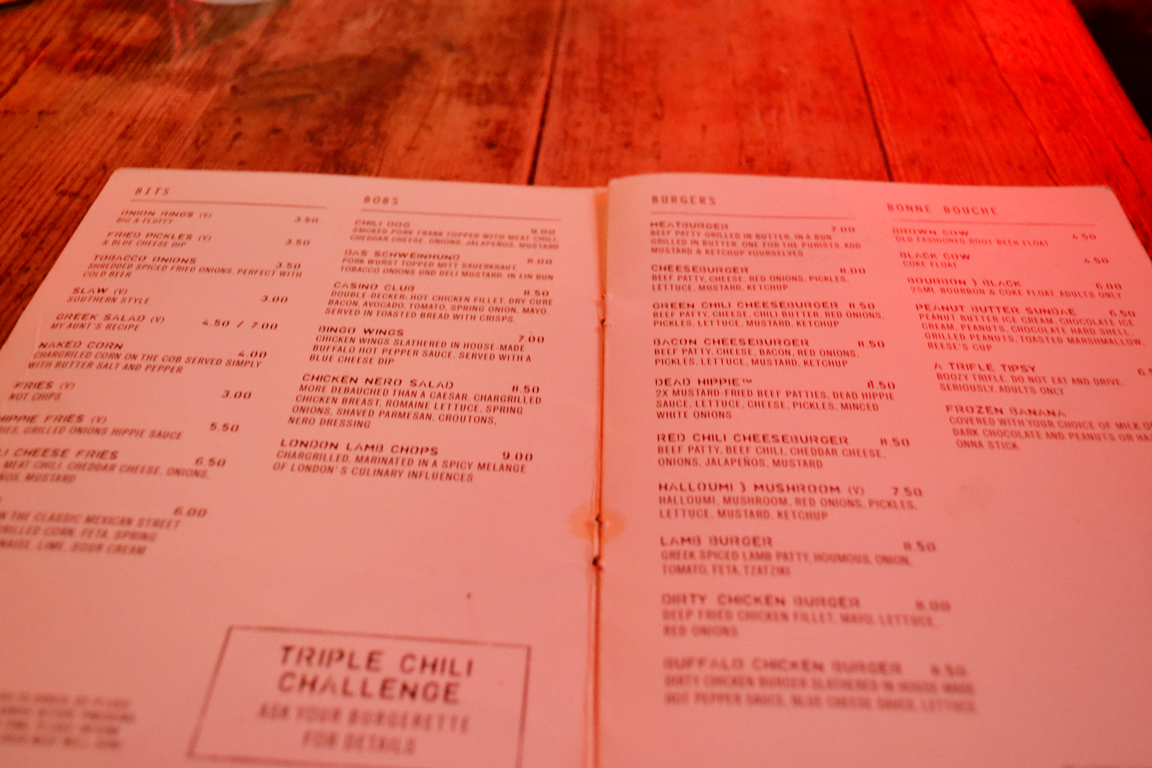 BITS
ONION RINGS (V) 3.50
BIG & FLUFFY
FRIED PICKLES (V) 3.50
& BLUE CHEESE DIP
TOBACCO ONIONS 3.50
SHREDDED SPICED FRIED ONIONS. PERFECT WITH
COLD BEER
SLAW (V) 3.00
SOUTHERN STYLE
GREEK SALAD (V) 4.50 / 7.00
MY AUNT'S RECIPE
NAKED CORN 4.00
CHARGRILLED CORN ON THE COB SERVED SIMPLY
WITH BUTTER SALT AND PEPPER
FRIES (V) 3.00
NOT CHIPS
HIPPIE FRIES (V) 5.50
GRILLED ONIONS HIPPIE SAUCE
CHEESE FRIES 6.50
MEAT CHILI, CHEDDAR CHEESE, ONIONS,
MUSTARD
6.00
THE CLASSIC MEXICAN STREET
CORN, FETA, SPRING
LIME, SOUR CREAM
BOBS
CHILI DOG 9.00
SMOKED PORK FRANK TOPPED WITH MEAT CHILI,
CHEDDAR CHEESE, ONIONS, JALAPEÑOS, MUSTARD
DAS SCHWEINHUND 8.00
PORK WURST TOPPED MITT SAUERKRAUT,
TOBACCO ONIONS UND DELI MUSTARD. IN EIN BUN
CASINO CLUB 8.50
DOUBLE-DECKER: HOT CHICKEN FILLET, DRY CURE
BACON, AVOCADO, TOMATO, SPRING ONION, MAYO.
SERVED IN TOASTED BREAD WITH CRISPS.
BINGO WINGS 7.00
CHICKEN WINGS SLATHERED IN HOUSE-MADE
BUFFALO HOT PEPPER SAUCE. SERVED WITH A
BLUE CHEESE DIP
CHICKEN NERO SALAD 8.50
MORE DEBAUCHED THAN A CAESAR. CHARGRILLED
CHICKEN BREAST, ROMAINE LETTUCE, SPRING
ONIONS, SHAVED PARMESAN, CROUTONS,
NERO DRESSING
LONDON LAMB CHOPS 9.00
CHARGRILLED, MARINATED IN A SPICY MELANGE
OF LONDON'S CULINARY INFLUENCES
TRIPLE CHILI
CHALLENGE
ASK YOUR BURGERETTE
FOR DETAILS
BURGERS
MEATBURGER 7.00
BEEF PATTY GRILLED IN BUTTER, IN A BUN
GRILLED IN BUTTER. ONE FOR THE PURISTS. ADD
MUSTARD & KETCHUP YOURSELVES
CHEESEBURGER 8.00
BEEF PATTY, CHEESE, RED ONIONS, PICKLES,
LETTUCE, MUSTARD, KETCHUP
GREEN CHILI CHEESEBURGER 8.50
BEEF PATTY, CHEESE, CHILI BUTTER, RED ONIONS,
PICKLES, LETTUCE, MUSTARD, KETCHUP
BACON CHEESEBURGER 8.50
BEEF PATTY, CHEESE, BACON, RED ONIONS,
PICKLES, LETTUCE, MUSTARD, KETCHUP
DEAD HIPPIE™ 8.50
2X MUSTARD-FRIED BEEF PATTIES, DEAD HIPPIE
SAUCE, LETTUCE, CHEESE, PICKLES, MINCED
WHITE ONIONS
RED CHILI CHEESEBURGER 8.50
BEEF PATTY, BEEF CHILI, CHEDDAR CHEESE,
ONIONS, JALAPEÑOS, MUSTARD
HALLOUMI } MUSHROOM (V) 7.50
HALLOUMI, MUSHROOM, RED ONIONS, PICKLES,
LETTUCE, MUSTARD, KETCHUP
LAMB BURGER 8.50
GREEK SPICED LAMB PATTY, HOUMOUS, ONION,
TOMATO, FETA, TZATZIKI
DIRTY CHICKEN BURGER 8.00
DEEP FRIED CHICKEN FILLET, MAYO, LETTUCE,
RED ONIONS
BUFFALO CHICKEN BURGER 8.50
DIRTY CHICKEN BURGER SLATHERED IN HOUSE MADE
HOT PEPPER SAUCE, BLUE CHEESE SAUCE, LETTUCE
BONNE BOUCHE
BROWN COW 4.50
OLD FASHIONED ROOT BEER FLOAT
BLACK COW 4.50
COKE FLOAT
BOURBON } BLACK 6.00
25ML BOURBON & COKE FLOAT. ADULTS ONLY
PEANUT BUTTER SUNDAE 6.50
PEANUT BUTTER ICE CREAM, CHOCOLATE ICE
CREAM, PEANUTS, CHOCOLATE HARD SHELL,
GRILLED PEANUTS, TOASTED MARSHMALLOW,
REESE'S CUP
A TRIFLE TIPSY
BOOZY TRIFLE. DO NOT EAT AND DRIVE.
SERIOUSLY. ADULTS ONLY
FROZEN BANANA
COVERED WITH YOUR CHOICE OF MILK
DARK CHOCOLATE AND PEANUTS OR
ONNA STICK